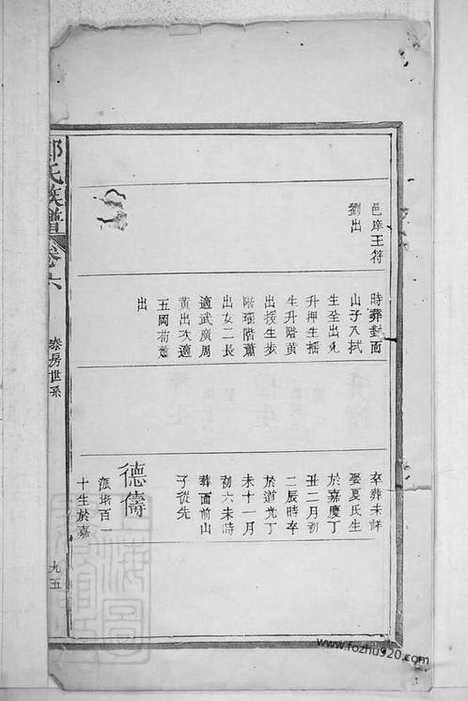 邑庠王符
劉出
時葬對面
山子入拭
生至出允
升押生搖
生升階黃
出授生步
階瑾階蕭
出女二長
適武廣周
黃出次適
五岡荷蕭
出
卒葬未詳
娶夏氏生
於嘉慶丁
丑二月初
二辰時卒
於道光丁
未十一月
初六未時
葬面前山
子從先
德儔
派珞百一
十生於嘉
氏族譜
卷六
泰房世系
九五
www.fozhu920.com